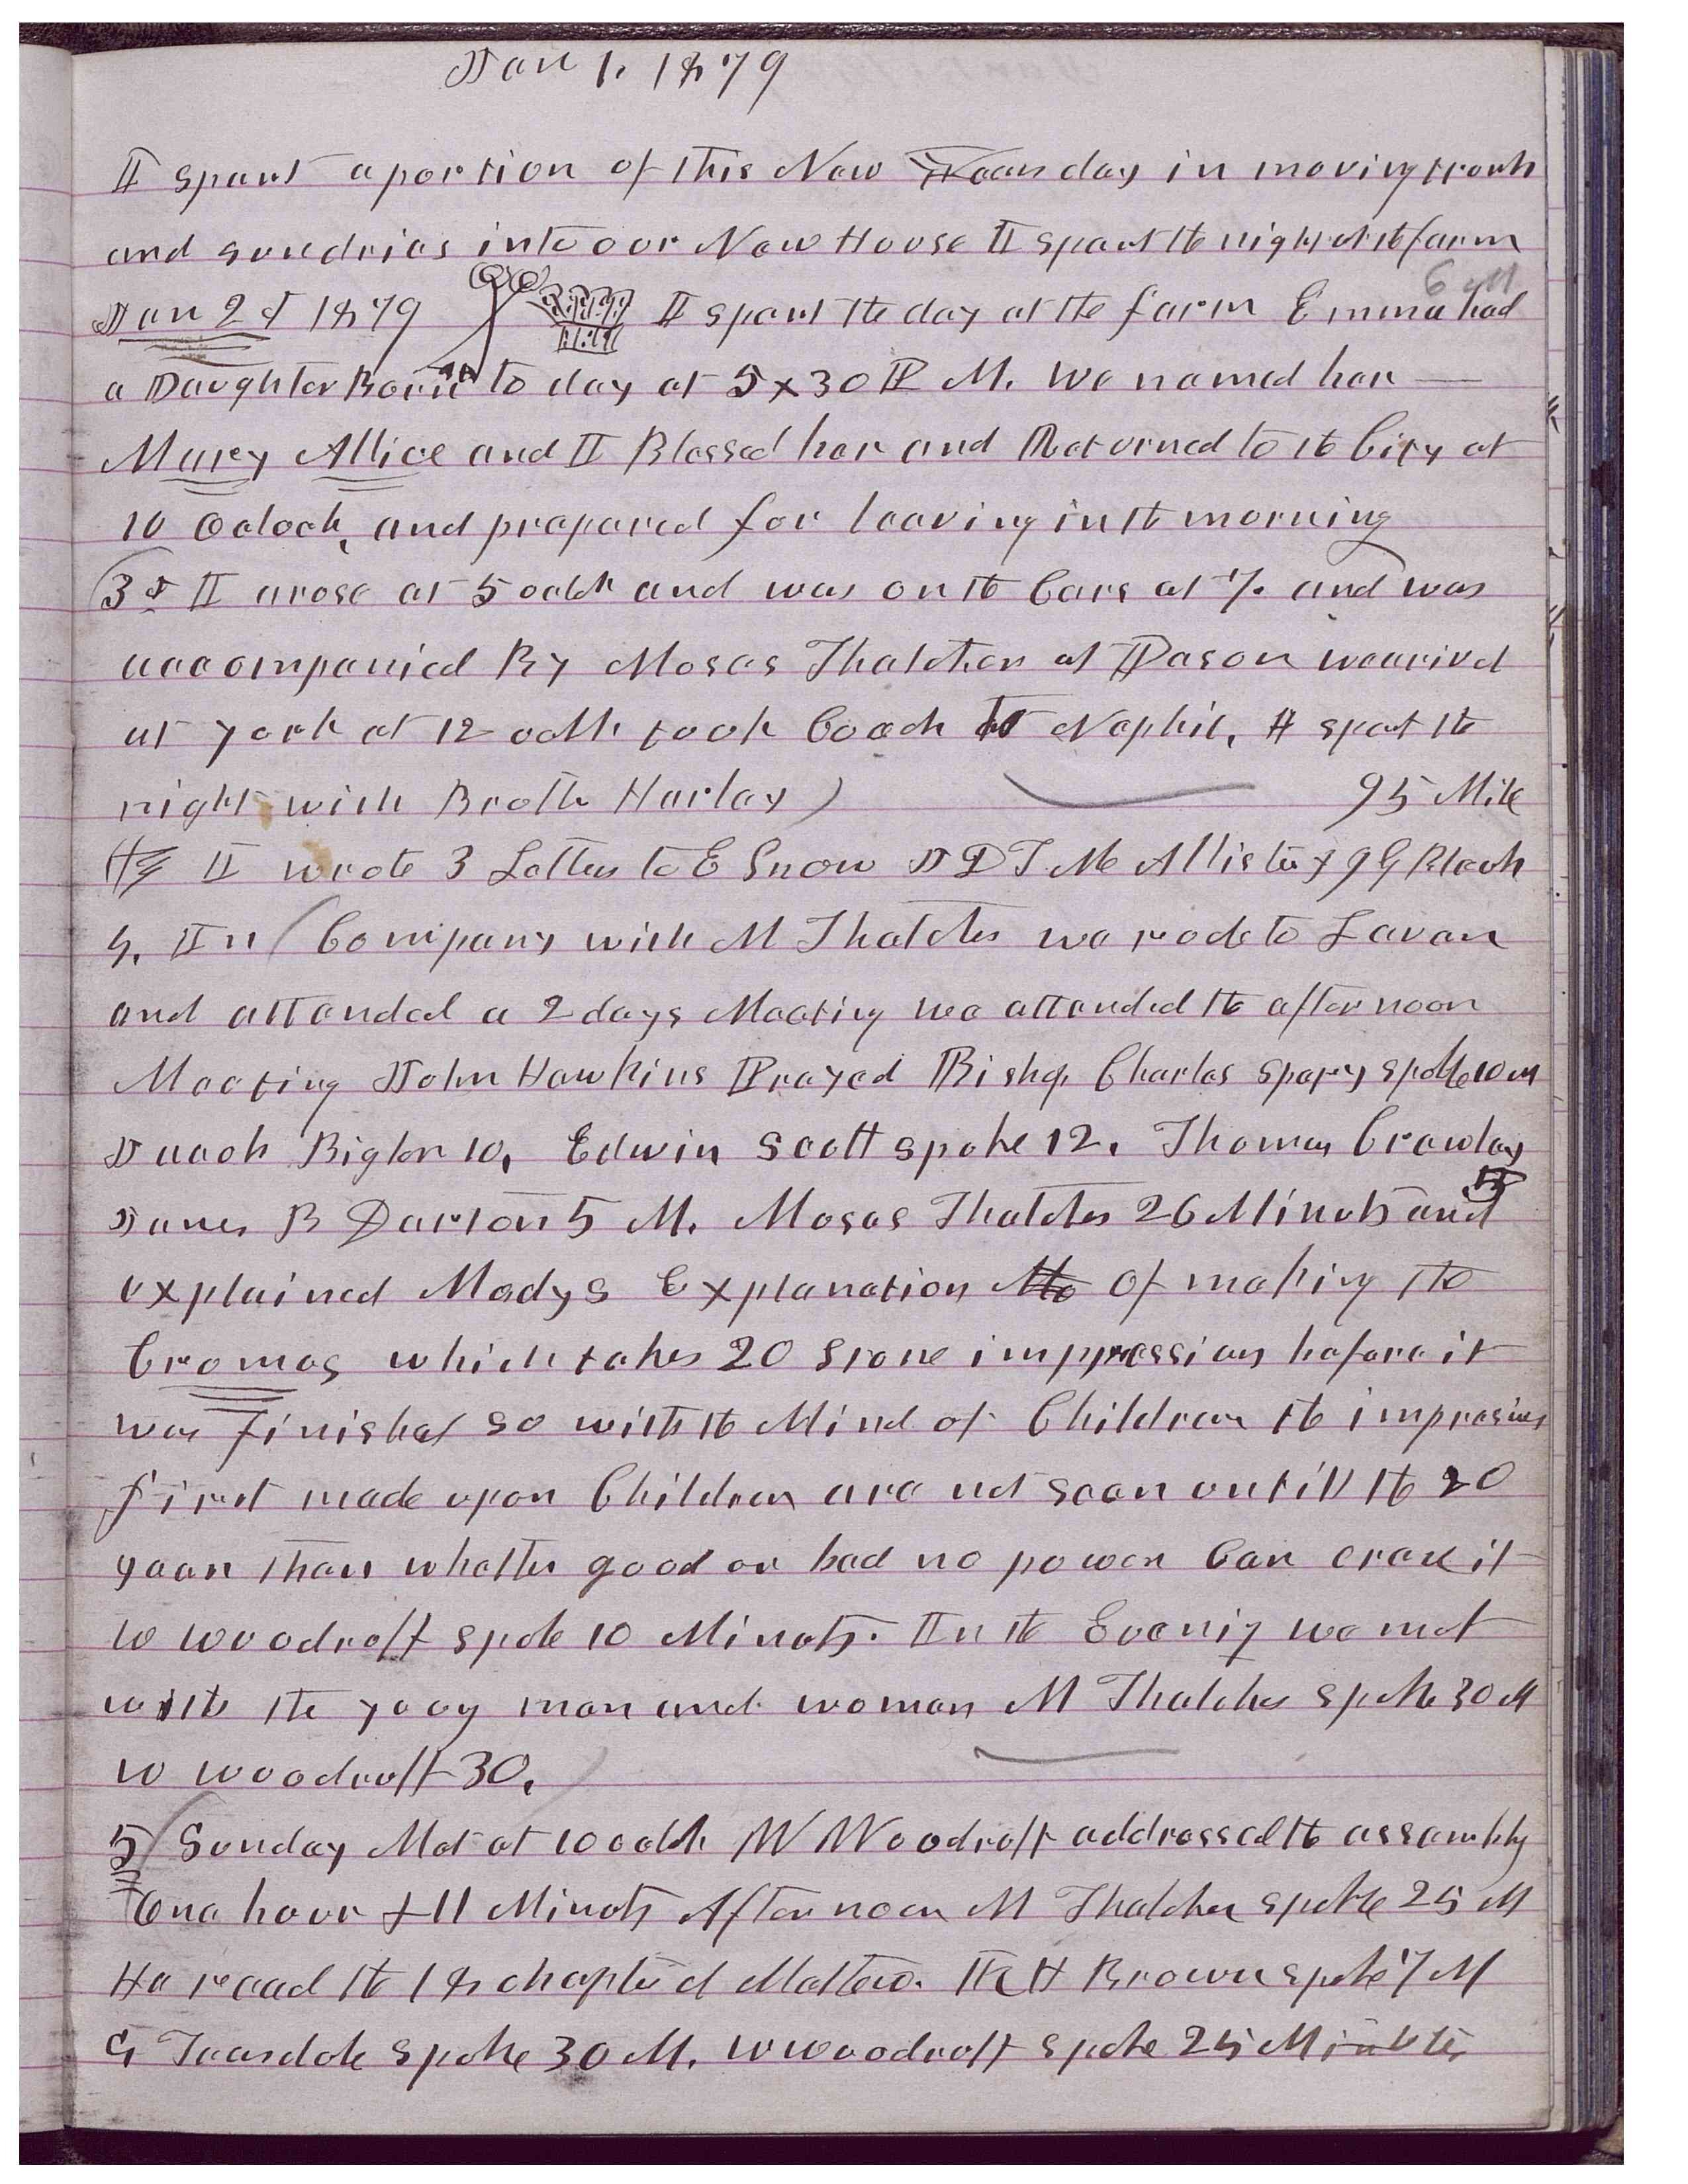 Jan 1. 1879
I spent a portion of this New Years day in moving trunks
and sundries into our New House I spent the night at the farm
6 M
Jan 2d 1879 I spent the day at the farm Emma had
a Daughter Born to day at 5x30 P M. we named her —
Mary Allice and I Blessed her and Returned to the City at
10 Oclock, and prepared for leaving in the morning
3d I arose at 5 oclok and was on the Cars at 7. and was
accompanied By Moses Thatcher at Pason we arived
at york at 12 oclk took Coach to Nephi. I spent the
night with Brothr Harley) 95 Mile
I wrote 3 Letters to E Snow J D T Mc Allister & J G Bleak
4. In Company with M Thatcher we rode to Levan
and attended a 2 days Meeting we attended the afternoon
Meeting John Hawkins Prayed Bishop Charles Spery spoke 10 M
Jacob Bigler 10, Edwin Scott spoke 12. Thomas Crawley 5
James B Darton 5 M. Moses Thatcher 26 Minuts and
explained Modys Explanation of making the
Cromos which takes 20 stone impressions before it
was finished so with the Mind of Children the impresions
first made upon Children are not seen untill the 20
year then whether good or bad no power Can erase it
W Woodruff spoke 10 Minuts. In the Evenig we met
with the yoog men and women M Thatcher spoke 30 M
W Woodruff 30.
5 Sunday Met at 10 oclok W Woodruff addressed the assembly
One hour & 11 Minuts Afternoon M Thatcher spoke 25 M
He read the 18 chapter of Mattew. R H Brown spoke 7 M
G Teasdale spoke 30 M. W Woodruff spoke 25 Minutes